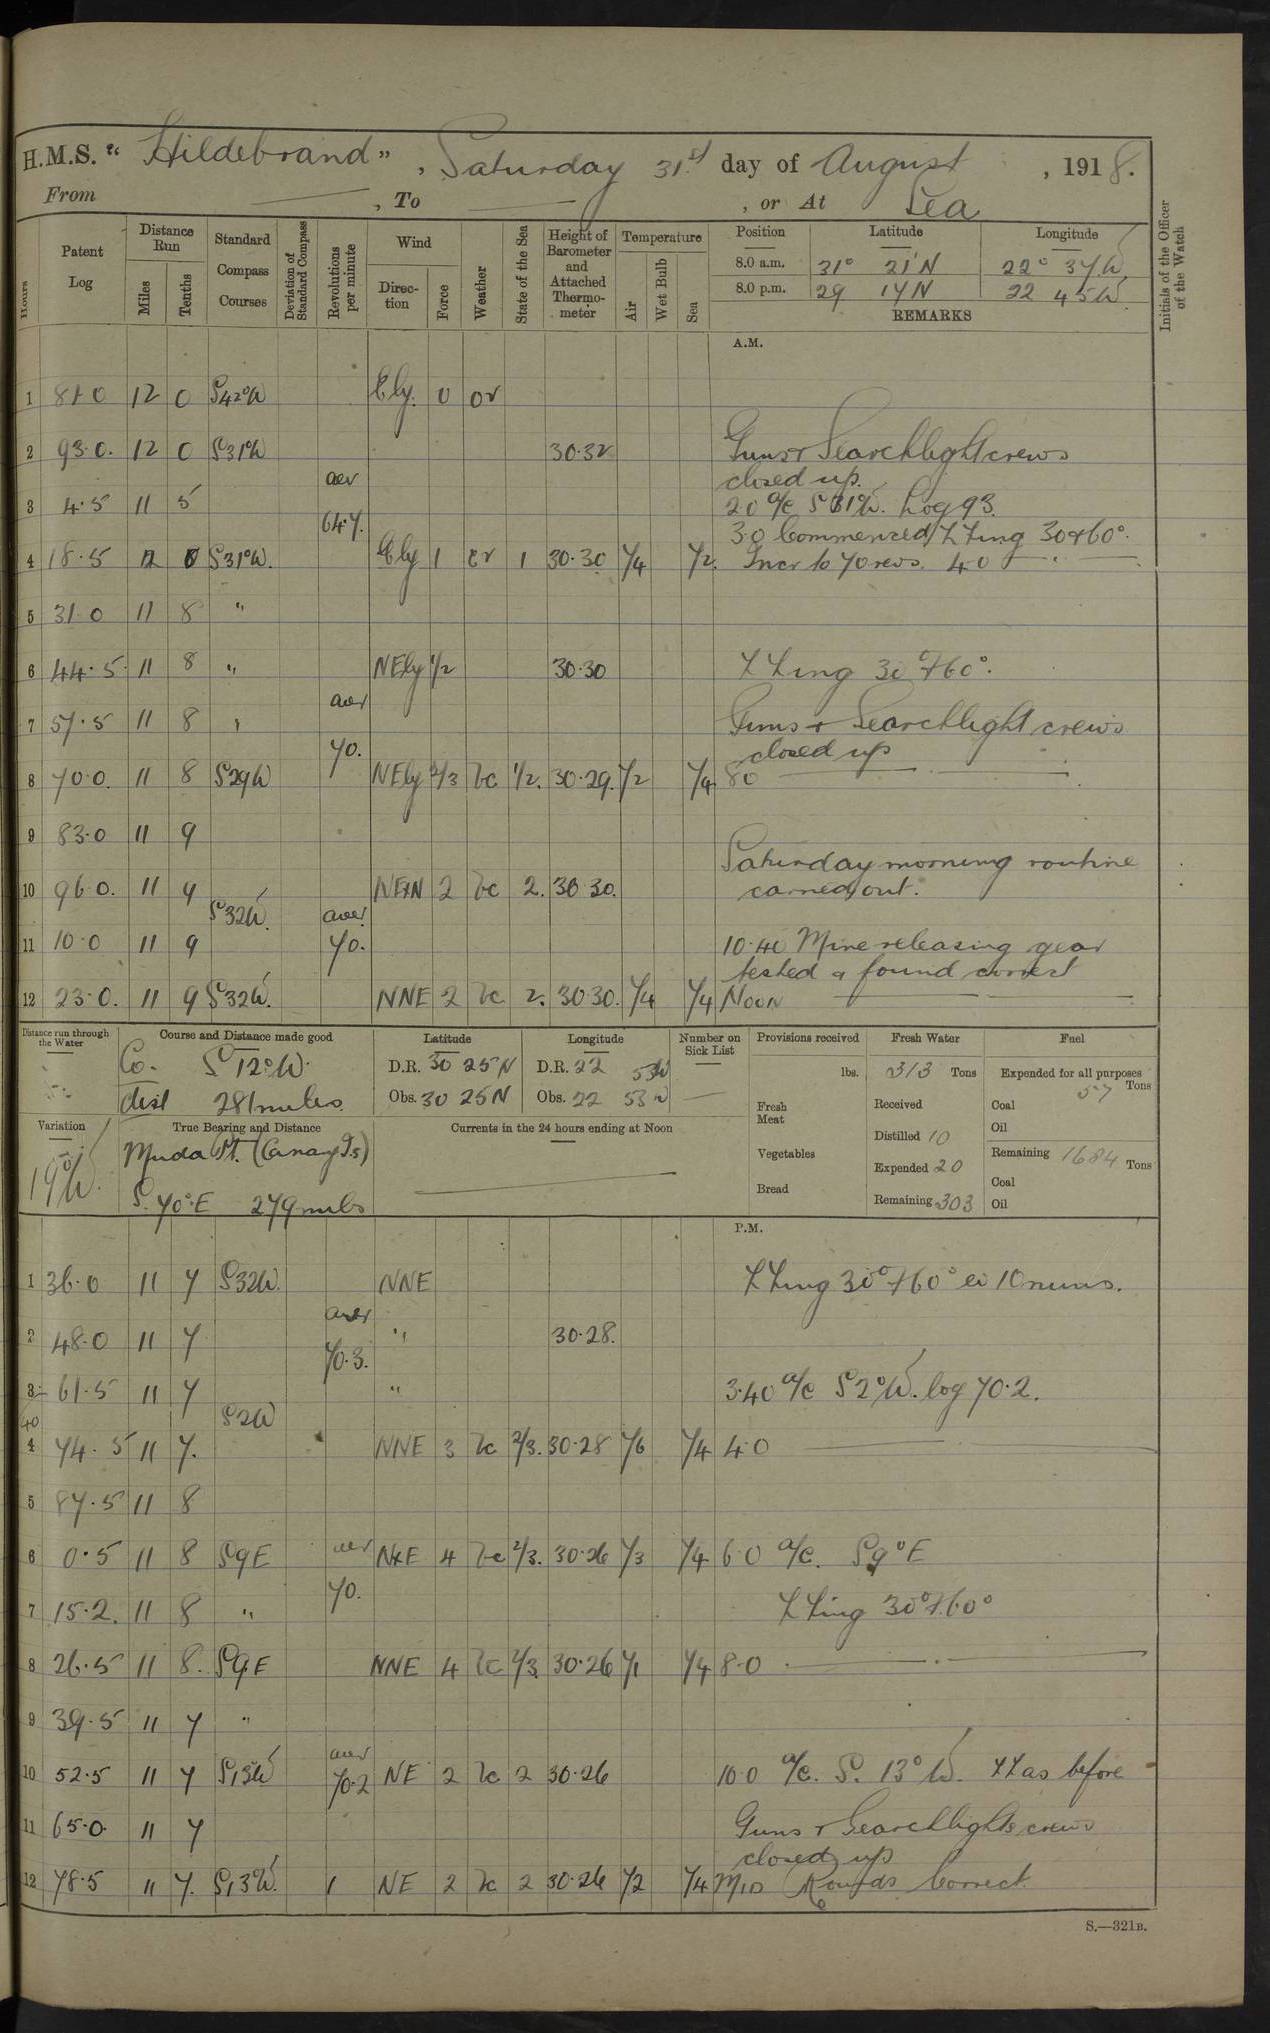 H.M.S. "Hildebrand", Saturday 31st day of August, 1918.
From — , To — , or At Sea
Hours
Patent Log
Distance Run
Miles
Tenths
Standard Compass Courses
Deviation of Standard Compass
Revolutions per minute
Wind
Direction
Force
Weather
State of the Sea
Height of Barometer and Attached Thermometer
Temperature
Air
Wet Bulb
Sea
Position Latitude Longitude
8.0 a.m. 31° 21'N 22° 37W
8.0 p.m. 29 14N 22 45W
REMARKS
Initials of the Officer of the Watch
A.M.
1 81.0 12 0 S42°W Ely. 0 or
2 93.0. 12 0 S31°W 30.32 Guns & Searchlight crews
closed up.
3 4.5 11 5 aver 64.7. 2.0 a/c S31°W. Log 93.
3.0 Commenced ZZing 30+60°.
4 18.5 S31°W. Ely 1 or 1 30.30 74 72. Incr to 70 revs. 4.0
5 31.0 11 8 "
6 44.5 11 8 " NEly 1/2 30.30 ZZing 30°+60°.
7 57.5 11 8 " aver 70. Guns + Searchlight crews
closed up
8 70.0. 11 8 S29W NEly 2/3 bc 1/2. 30.29. 72 74 80
9 83.0 11 9
Saturday morning routine
10 96.0. 11 9 NExN 2 bc 2. 30 30. carried out.
S32W. aver. 70.
11 10.0 11 9 10.40 Mine releasing gear
tested & found correct
12 23.0. 11 9 S32W. NNE 2 bc 2. 30 30. 74 74 Noon
Distance run through the Water
Course and Distance made good
Co. S12°W.
dist 281 miles.
Latitude
D.R. 30 25 N
Obs. 30 25 N
Longitude
D.R. 22 53W
Obs. 22 53W
Number on Sick List
—
Provisions received
lbs.
Fresh Meat
Vegetables
Bread
Fresh Water
313 Tons
Received
Distilled 10
Expended 20
Remaining 303
Fuel
Expended for all purposes
57 Tons
Coal
Oil
Remaining 1684 Tons
Coal
Oil
Variation
19°W.
True Bearing and Distance
Muda Pt. (Canary Is)
S. 70°E 279 miles
Currents in the 24 hours ending at Noon
P.M.
1 36.0 11 7 S32W. NNE ZZing 30°+60° ev 10 mins.
2 48.0 11 7 aver 70.3. " 30.28.
3 61.5 11 7 " 3.40 a/c S2°W. log 70.2.
40 S2W
4 74.5 11 7. NNE 3 bc 2/3. 30.28 76 74 4.0
5 87.5 11 8
6 0.5 11 8 S9E aver 70. NxE 4 bc 2/3. 30.26 73 74 6.0 a/c. S9°E
7 15.2. 11 8 " ZZing 30°+60°
8 26.5 11 8. S9.E NNE 4 bc 2/3 30.26 71 74 8.0
9 39.5 11 7 "
10 52.5 11 7 S13W aver 70.2 NE 2 bc 2 30.26 10 0 a/c. S. 13°W. ZZ as before
11 65.0. 11 7 Guns + Searchlights crews
closed up
12 78.5 11 7. S13°W. NE 2 bc 2 30.26 72 74 Mid Rounds Correct.
S.—321B.